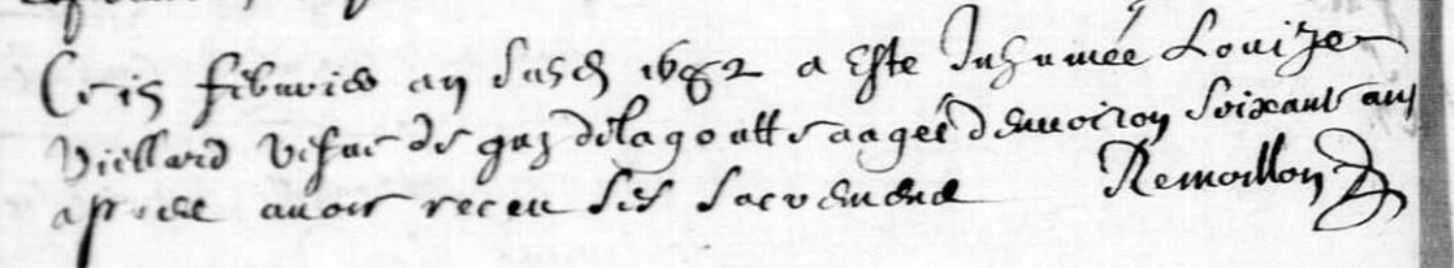 Ce 19 febvrier an susd 1682 a Este Inhumée Louize
Viellard vefve de guy delagoutte aagée denviron Soixante ans
apres avoir receu ses sacremens Remoillon